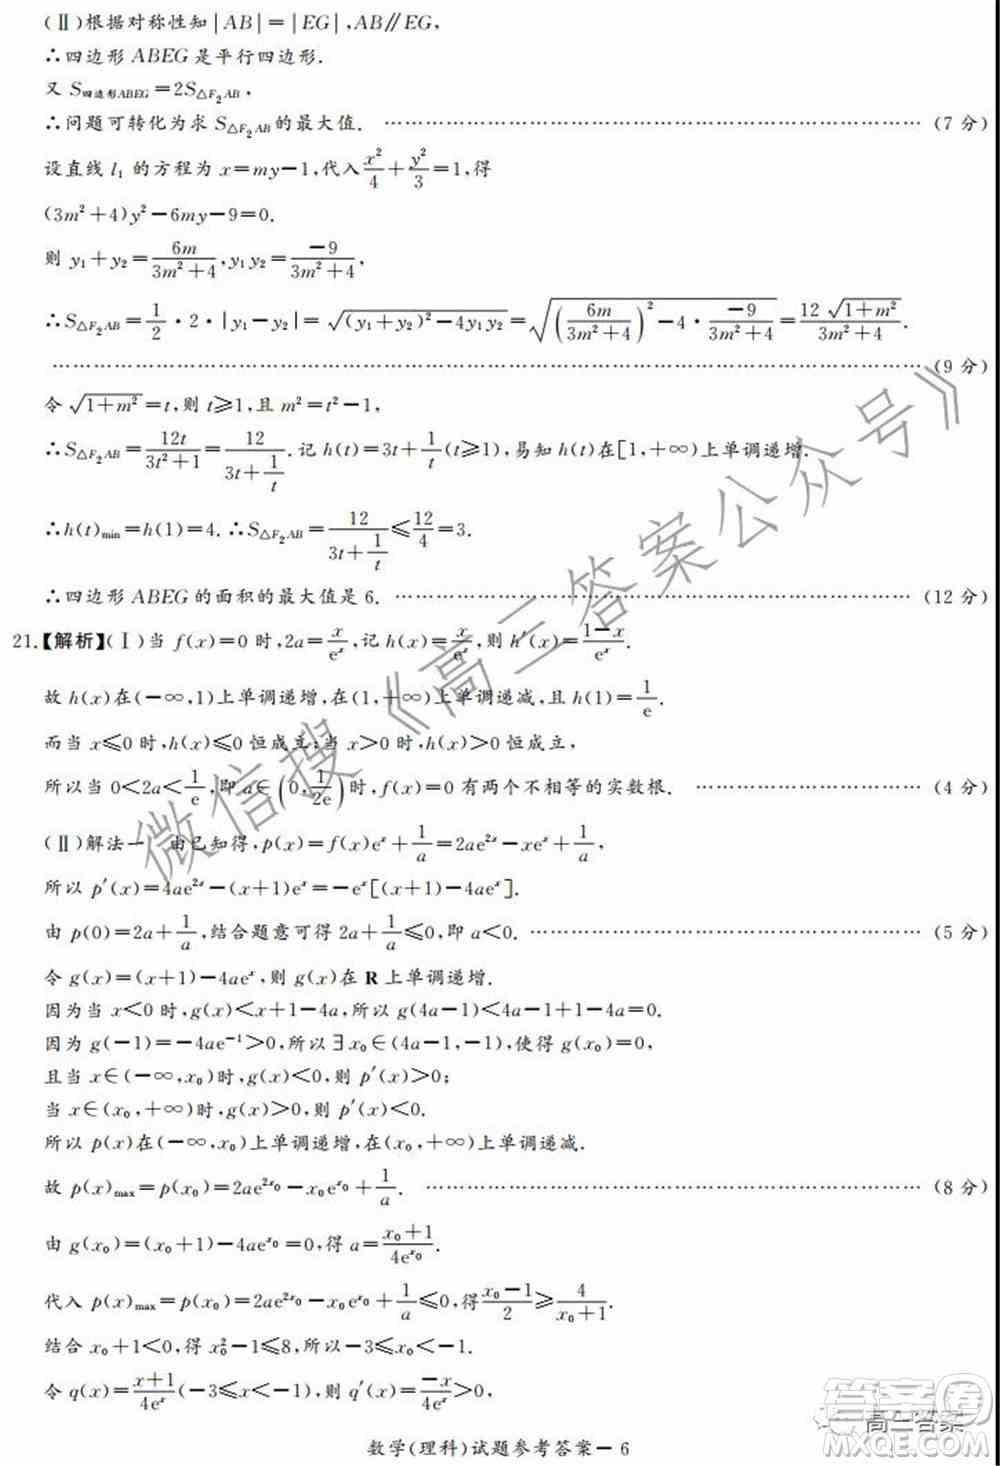 (Ⅱ)根据对称性知|AB|=|EG|,AB∥EG,
∴四边形 ABEG 是平行四边形.
又 S四边形ABEG=2S△F₂AB,
∴问题可转化为求 S△F₂AB的最大值. ……………………………………………………(7 分)
设直线 l₁ 的方程为 x=my−1,代入x²/4+y²/3=1,得
(3m²+4)y²−6my−9=0.
则 y₁+y₂=6m/(3m²+4),y₁y₂=−9/(3m²+4),
∴S△F₂AB=1/2·2·|y₁−y₂|=√((y₁+y₂)²−4y₁y₂)=√((6m/(3m²+4))²−4·−9/(3m²+4))=12√(1+m²)/(3m²+4).
……………………………………………………(9 分)
令√(1+m²)=t,则 t≥1,且 m²=t²−1,
∴S△F₂AB=12t/(3t²+1)=12/(3t+1/t).记 h(t)=3t+1/t(t≥1),易知 h(t)在[1,+∞)上单调递增.
∴h(t)min=h(1)=4.∴S△F₂AB=12/(3t+1/t)≤12/4=3.
∴四边形 ABEG 的面积的最大值是 6. ……………………………………………………(12 分)
21.【解析】(Ⅰ)当 f(x)=0 时,2a=x/eˣ,记 h(x)=x/eˣ,则 h′(x)=(1−x)/eˣ.
故 h(x)在(−∞,1)上单调递增,在(1,+∞)上单调递减,且 h(1)=1/e.
而当 x≤0 时,h(x)≤0 恒成立;当 x>0 时,h(x)>0 恒成立,
所以当 0<2a<1/e,即 a∈(0,1/2e)时,f(x)=0 有两个不相等的实数根. ……………………(4 分)
(Ⅱ)解法一 由已知得,p(x)=f(x)eˣ+1/a=2ae²ˣ−xeˣ+1/a,
所以 p′(x)=4ae²ˣ−(x+1)eˣ=−eˣ[(x+1)−4aeˣ].
由 p(0)=2a+1/a,结合题意可得 2a+1/a≤0,即 a<0. ……………………………………(5 分)
令 g(x)=(x+1)−4aeˣ,则 g(x)在 R 上单调递增.
因为当 x<0 时,g(x)<x+1−4a,所以 g(4a−1)<4a−1+1−4a=0.
因为 g(−1)=−4ae⁻¹>0,所以∃x₀∈(4a−1,−1),使得 g(x₀)=0,
且当 x∈(−∞,x₀)时,g(x)<0,则 p′(x)>0;
当 x∈(x₀,+∞)时,g(x)>0,则 p′(x)<0.
所以 p(x)在(−∞,x₀)上单调递增,在(x₀,+∞)上单调递减.
故 p(x)max=p(x₀)=2ae^(2x₀)−x₀e^(x₀)+1/a. ……………………………………………………(8 分)
由 g(x₀)=(x₀+1)−4ae^(x₀)=0,得 a=(x₀+1)/4e^(x₀).
代入 p(x)max=p(x₀)=2ae^(2x₀)−x₀e^(x₀)+1/a≤0,得(x₀−1)/2≥4/(x₀+1).
结合 x₀+1<0,得 x₀²−1≤8,所以−3≤x₀<−1.
令 q(x)=(x+1)/4eˣ(−3≤x<−1),则 q′(x)=−x/4eˣ>0,
数学(理科)试题参考答案−6
微信搜《高三答案公众号》
答案圈
高三答案